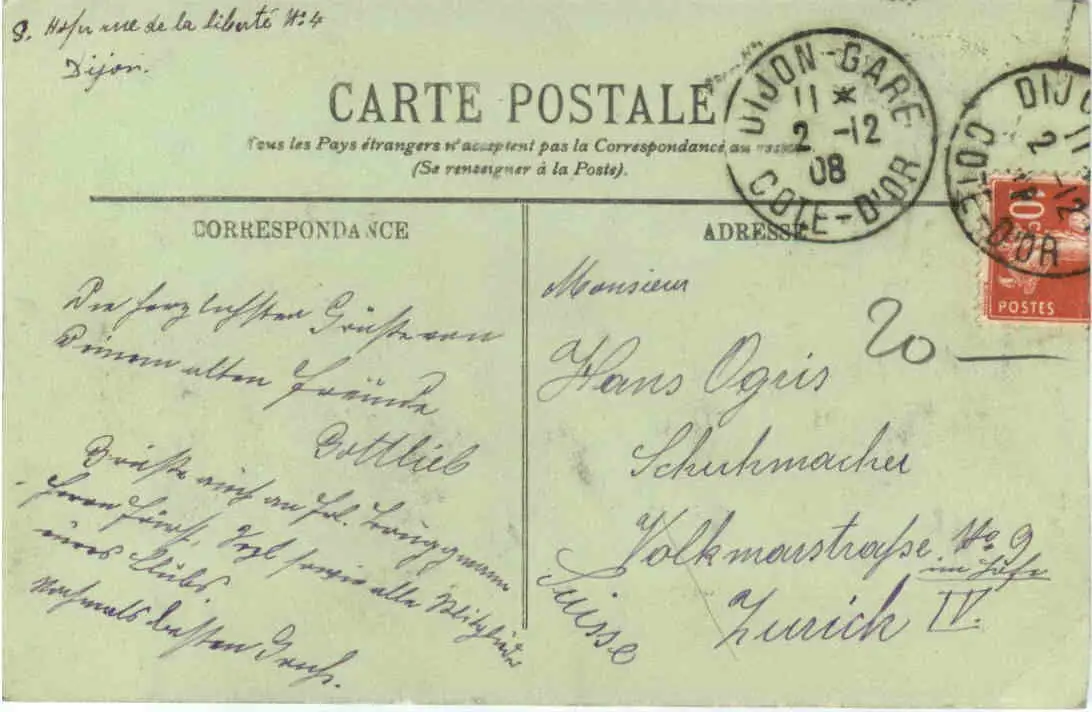 8. Hofer rue de la liberté No 4
Dijon.
CARTE POSTALE
Tous les Pays étrangers n'acceptent pas la Correspondance au
(Se renseigner à la Poste).
DIJON-GARE
11 *
2 -12
08
COTE-D'OR
DIJ
11
2 -12
COTE-D'OR
10
POSTES
CORRESPONDANCE
Die herzlichsten Grüße von
Deinem alten Freunde
Gottlieb
Grüße auch an Frl. Brüggmann
Herrn Fürst, sowie alle Mitglieder
eures Clubs
Nochmals besten Gruß.
ADRESSE
Monsieur
20
Hans Ogris
Schuhmacher
Volkmarstraße No 9
im Hofe
Zurich IV.
Suisse